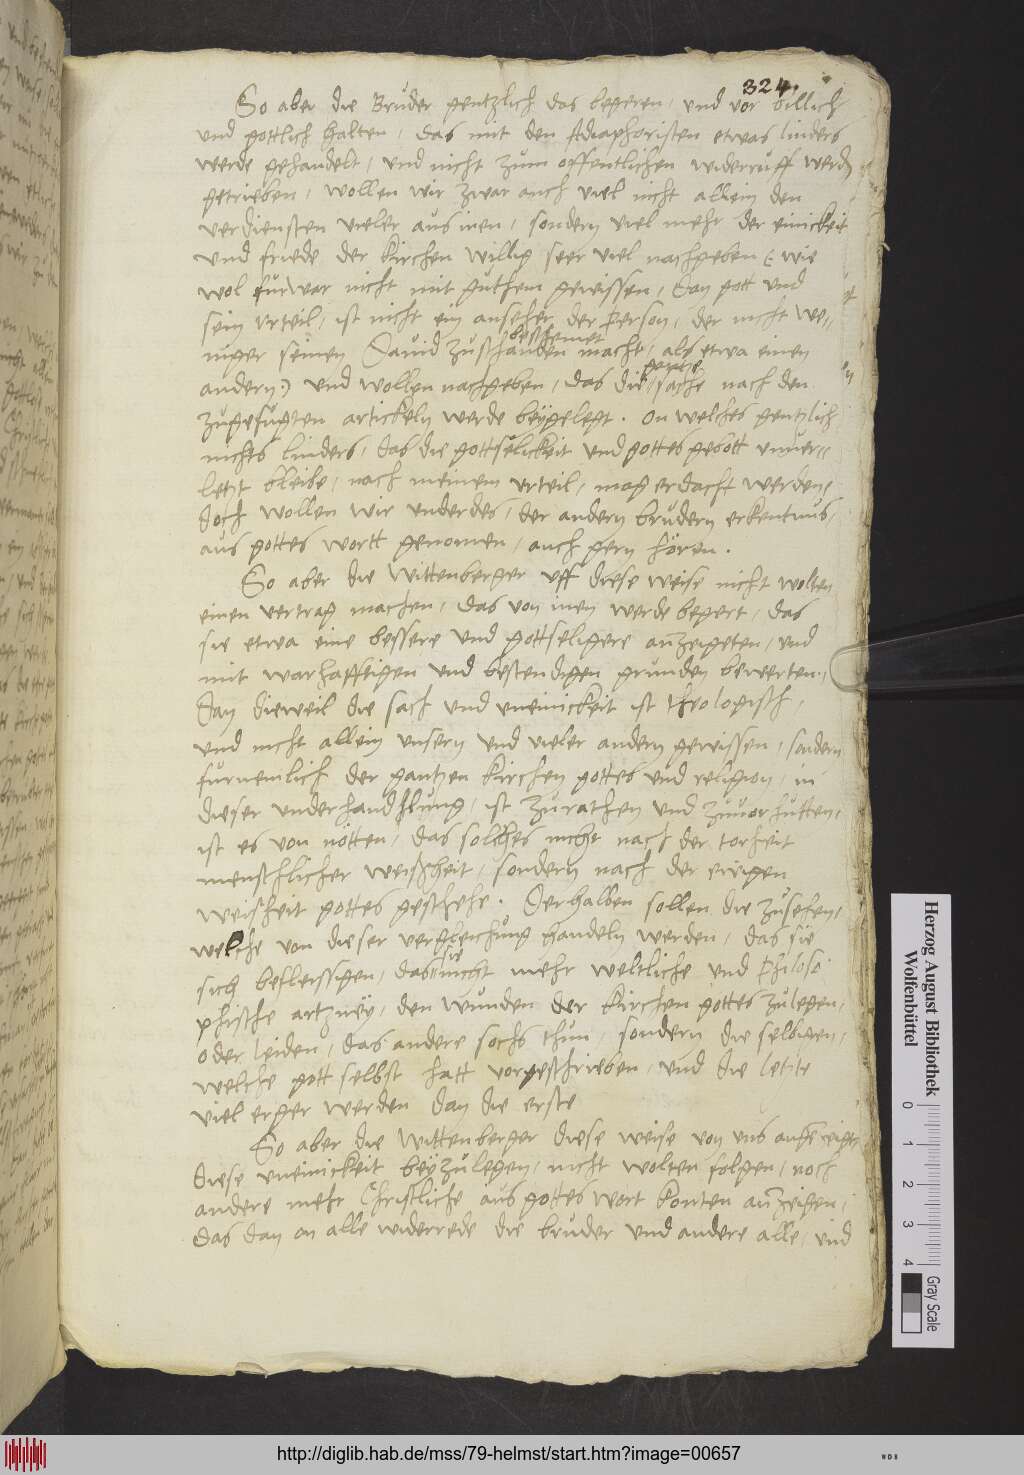 324.
So aber die Brüder gentzlich das begeren, und vor billich
und gottlich halten, das mit den Adiaphoristen etwas linders
werde gehandelt, und nicht zum offentlichen widerruff werdē
getrieben, wollen wir zwar auch viel nicht allein den
verdiensten vieler aus inen, sondern viel mehr der einickeit
und friede der Kirchen willig seer viel nachgeben (: wie
wol fürwar nicht mit guthem gewissen, Dan gott und
sein urteil, ist nicht ein anseher der Person, der nicht we=
niger seinen David zuschanden macht, als etwa einen
beschemet
andern:) und wollen nachgeben, das die sache nach den
gantze
zugefugten artickeln werde beÿgelegt. On welches gentzlich
nichts linders, das die gottselickeit und gottes gebott unver=
letzt bleibe, nach meinem urteil, mag erdacht werden,
doch wollen wir underdes, der andern brüdern erkentnus,
aus gottes wortt genomen, auch gern hören.
So aber die Wittenberger uff diese weise nicht wolten
einen vertrag machen, das von inen werde begert, das
sie etwa eine bessere und gottseligere anzeigeten, und
mit warhafftigen und bestendigen grunden bewerten.
Dan dieweil die sach und uneinickeit ist theologisch,
und nicht allein unsern und vieler andern gewissen, sondern
fürnemlich der gantzen Kirchen gottes und religion, in
dieser underhandhlung, ist zurathen und zuvorhütten,
ist es von nötten, das solches nicht nach der torheit
menschlicher weisheit, sondern nach der ewigen
weisheit gottes geschehe. Derhalben sollen die zusehen,
welche von dieser vergleichung handeln werden, das sie
sich befleissigen, das sie nicht mehr weltliche und Philoso
phische artzneÿ, den wunden der Kirchen gottes zulegen,
oder leiden, das andere sochs thun, sondern die selbigen,
welche gott selbst hatt vorgeschrieben, und die letzte
viel erger werden dan die erste
So aber die Wittenberger diese weise von uns angezeigt,
diese uneinickeit beÿzulegen, nicht wolten folgen, noch
andere mehr Christliche aus gottes wort konten anzeigen,
das dan on alle widerrede die brüder und andere alle, und
Herzog August Bibliothek
Wolfenbüttel
0 1 2 3 4
Gray Scale
http://diglib.hab.de/mss/79-helmst/start.htm?image=00657
WDB